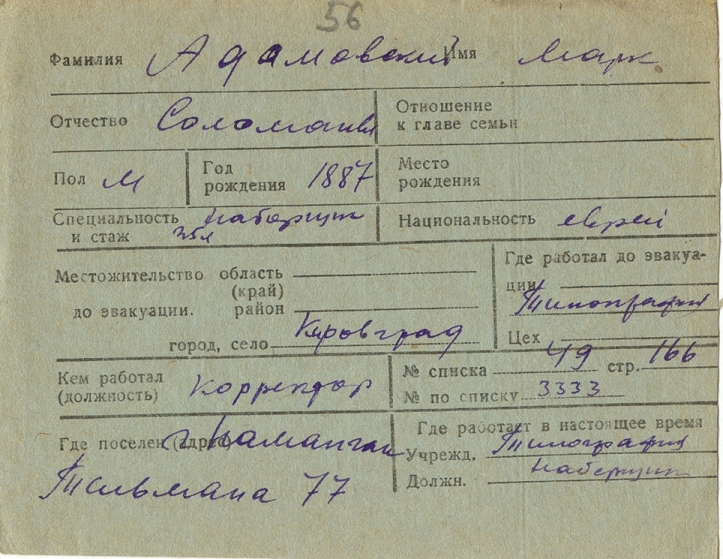 56
Фамилия Адамовский Имя Марк
Отчество Соломонов Отношение
к главе семьи
Пол М Год
рождения 1887 Место
рождения
Специальность
и стаж Наборщик
35л Национальность еврей
Местожительство область
(край)
до эвакуации. район
город, село Кировград
Где работал до эвакуа-
ции Типография
Цех
Кем работал
(должность) Корректор
№ списка 49 стр. 166
№ по списку 3333
Где поселен (адрес) г. Наманган
Тельмана 77
Где работает в настоящее время
Учрежд. Типография
Должн. наборщик